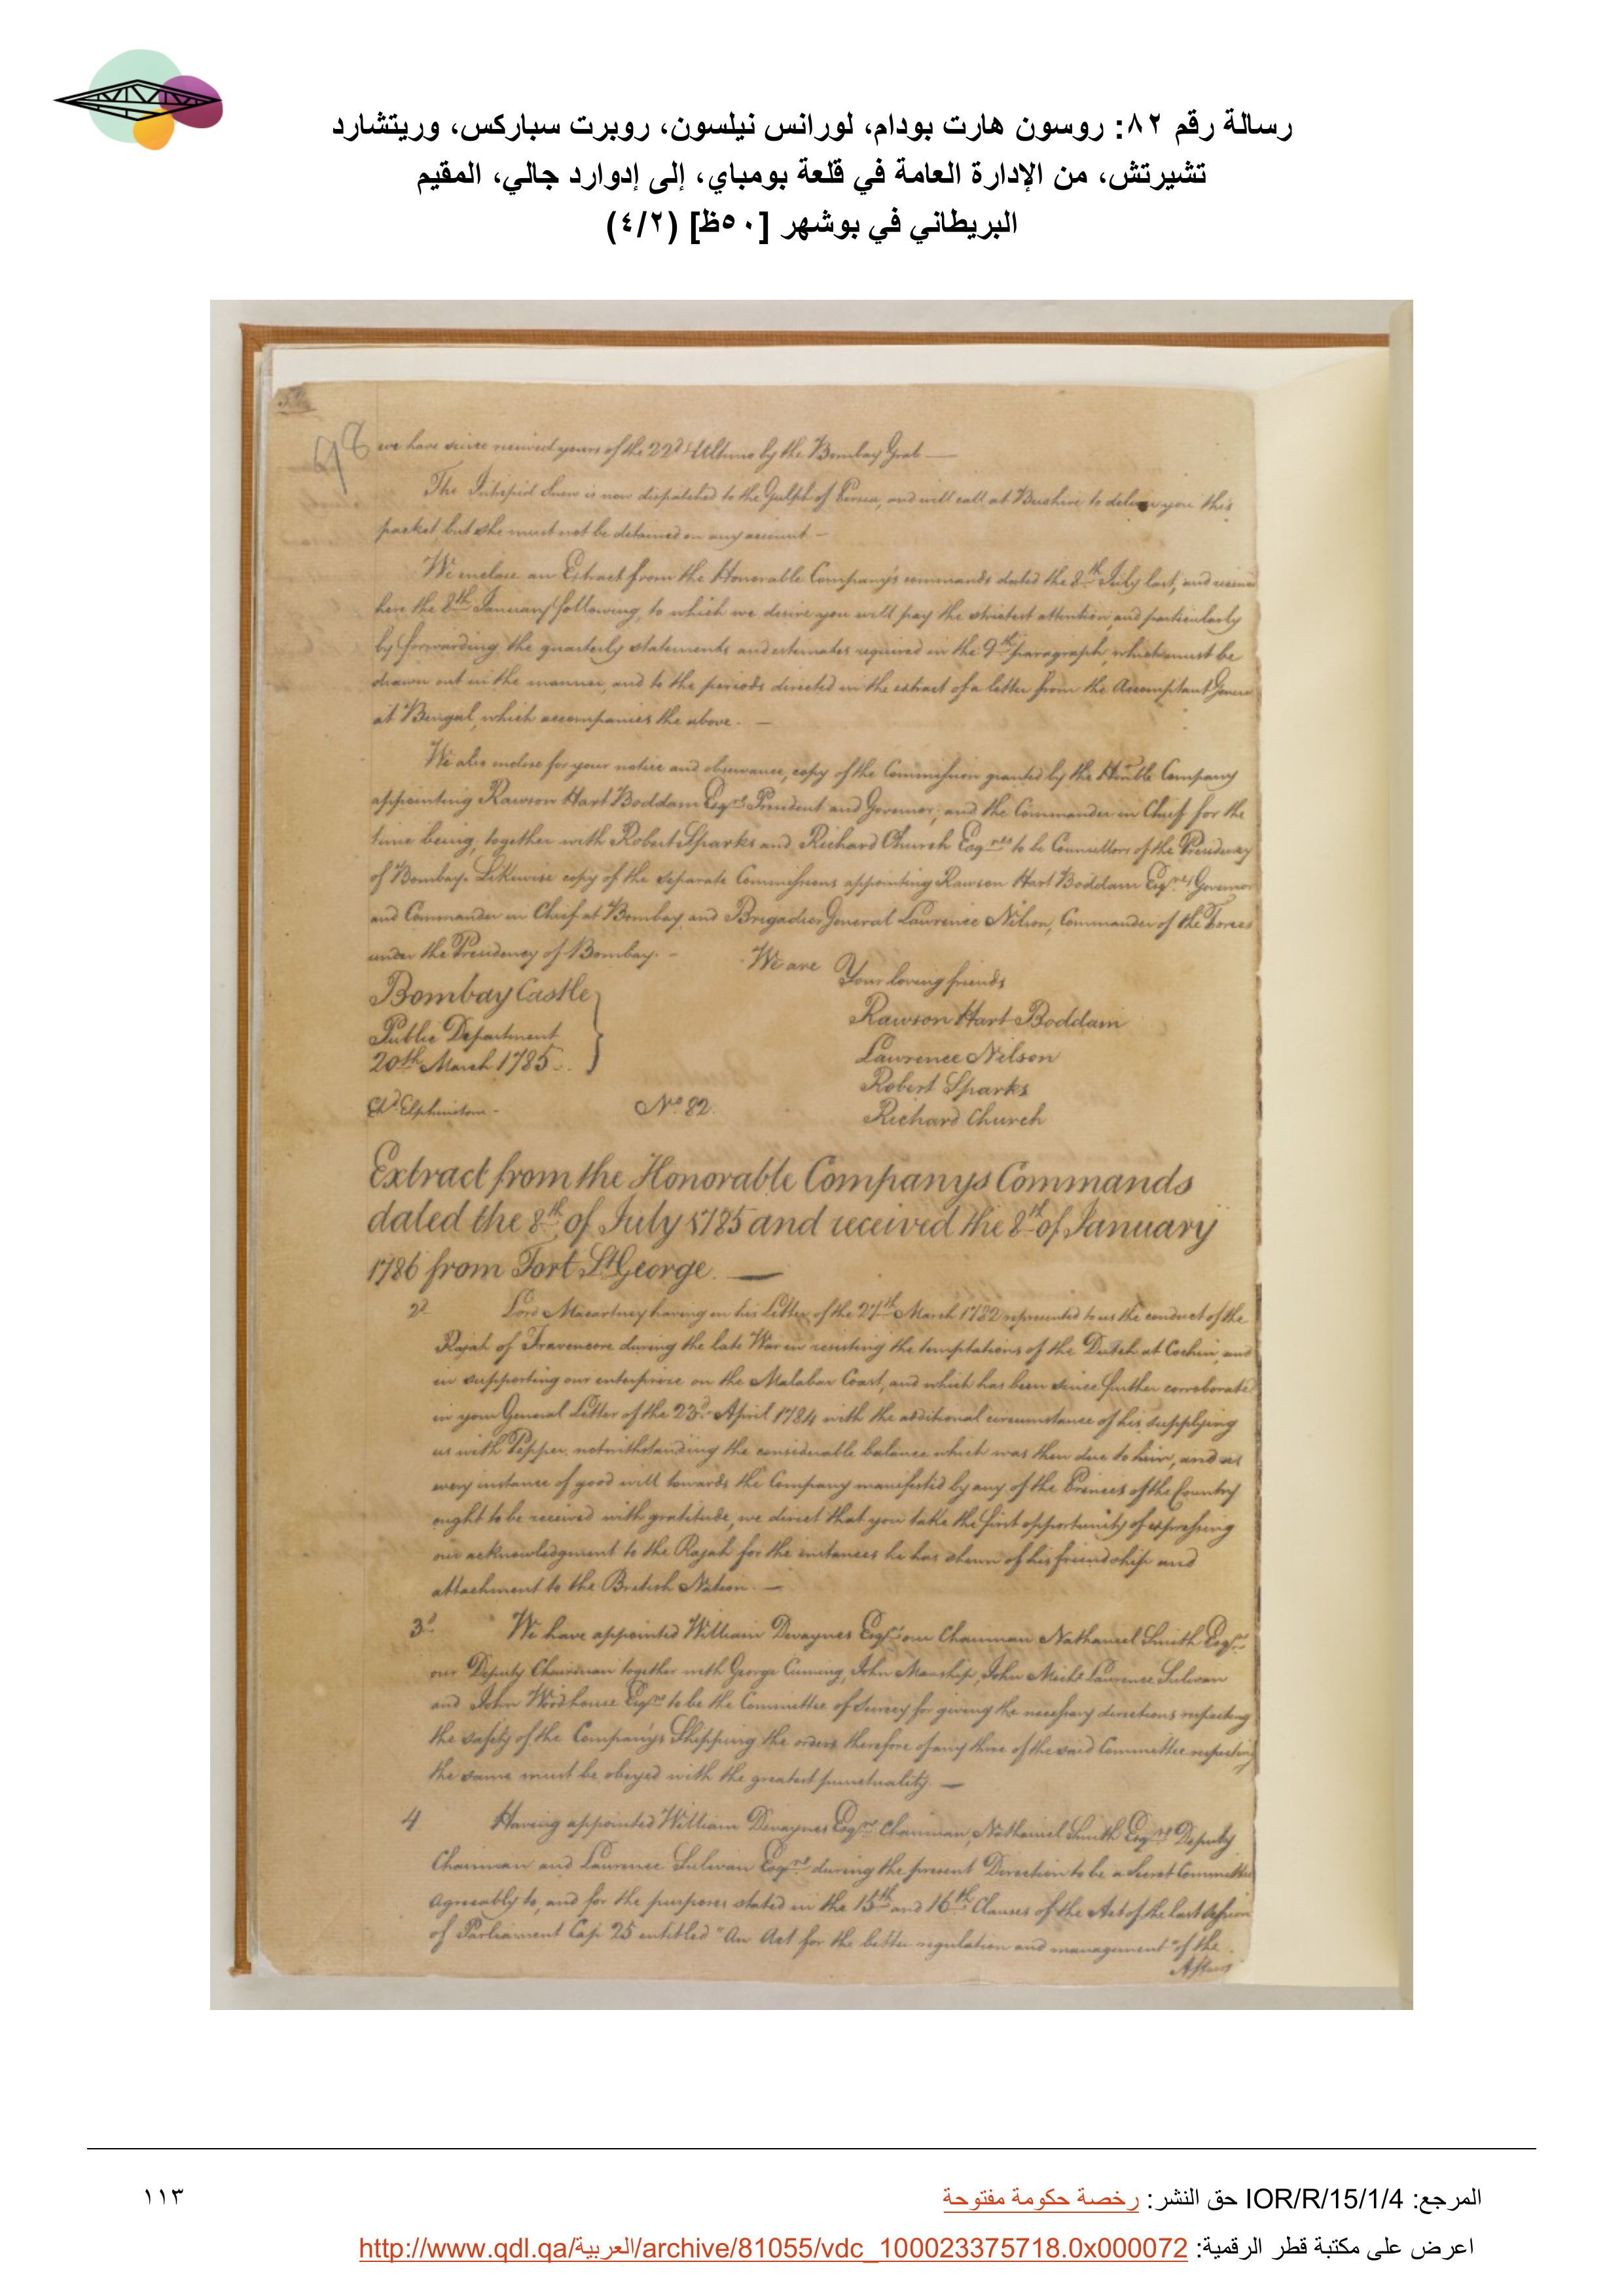 رسالة رقم ٨٢: روسون هارت بودام، لورانس نيلسون، روبرت سباركس، وريتشارد
تشيرتش، من الإدارة العامة في قلعة بومباي، إلى إدوارد جالي، المقيم
البريطاني في بوشهر [٥٠ظ] (٤/٢)
98
we have since received yours of the 22d Ultimo by the Bombay Grab
The Intrepid Snow is now dispatched to the Gulph of Persia, and will call at Bushire to deliver you this
packet, but she must not be detained on any account. —
We enclose an Extract from the Honorable Company's commands dated the 8th July last, and
here the 8th January following, to which we desire you will pay the strictest attention, and particularly
by forwarding the quarterly statements and estimates required in the 9th paragraph, which must be
drawn out in the manner, and to the periods directed in the extract of a letter from the Accomptant
at Bengal, which accompanies the above. —
We also enclose for your notice and observance, copy of the Commission granted by the Honble Company
appointing Rawson Hart Boddam Esqre President and Governor, and the Commander in Chief for the
time being, together with Robert Sparks and Richard Church Esqres to be Counsellors of the Presidency
of Bombay. Likewise copy of the separate Commissions appointing Rawson Hart Boddam Esqre Governor
and Commander in Chief at Bombay, and Brigadier General Lawrence Nilson, Commander of the Forces
under the Presidency of Bombay. —
We are
Your loving friends
Bombay Castle
Rawson Hart Boddam
Public Department
Lawrence Nilson
20th March 1785
Robert Sparks
Elphinston No 82.
Richard Church
Extract from the Honorable Companys Commands
dated the 8th of July 1785 and received the 8th of January
1786 from Fort St George. —
2d Lord Macartney having in his Letter of the 27th March 1782 represented to us the conduct of the
Rajah of Travencore during the late War in resisting the temptations of the Dutch at Cochin, and
in supporting our enterprize on the Malabar Coast, and which has been since further corroborate
in your General Letter of the 23d April 1784 with the additional circumstance of his supplying
us with Pepper notwithstanding the considerable balance which was then due to him, and as
every instance of good will towards the Company manifested by any of the Princes of the Country
ought to be received with gratitude, we direct that you take the first opportunity of expressing
our acknowledgment to the Rajah for the instances he has shewn of his friendship and
attachment to the British Nation. —
3d We have appointed William Devaynes Esqr our Chairman Nathaniel Smith Esqr
our Deputy Chairman together with George Cuming, John Manship, John Michl Laurence Sulivan
and John Woodhouse Esqrs to be the Committee of Survey for giving the necessary directions respecting
the safety of the Company's Shipping the orders therefore of any three of the said Committee respecting
the same must be obeyed with the greatest punctuality. —
4 Having appointed William Devaynes Esqre Chairman, Nathaniel Smith Esqre Deputy
Chairman and Laurence Sulivan Esqre during the present Direction to be a Secret Committee
Agreeably to, and for the purposes stated in the 15th and 16th Clauses of the Act of the last Session
of Parliament Cap 25 entitled "An Act for the better regulation and management" of the
Affairs
المرجع: IOR/R/15/1/4 حق النشر: رخصة حكومة مفتوحة
١١٣
اعرض على مكتبة قطر الرقمية: http://www.qdl.qa/العربية/archive/81055/vdc_100023375718.0x000072